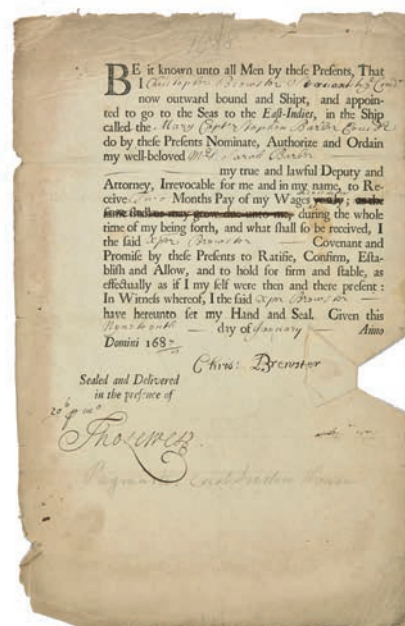 1688
BE it known unto all Men by these Presents, That
I Christopher Brewster
now outward bound and Shipt, and appoin-
ted to go to the Seas to the East-Indies, in the Ship
called the Mary Captn Stephen Barber
do by these Presents Nominate, Authorize and Ordain
my well-beloved Mrs Sarah Barber
my true and lawful Deputy and
Attorney, Irrevocable for me and in my name, to Re-
ceive Months Pay of my Wages
during the whole
time of my being forth, and what shall so be received, I
the said Xpor Brewster Covenant and
Promise by these Presents to Ratifie, Confirm, Esta-
blish and Allow, and to hold for firm and stable, as
effectually as if I my self were then and there present :
In Witness whereof, I the said Xpor Brewster
have hereunto set my Hand and Seal. Given this
day of January Anno
Domini 168
Chris: Brewster
Sealed and Delivered
in the presence of
20s p mo